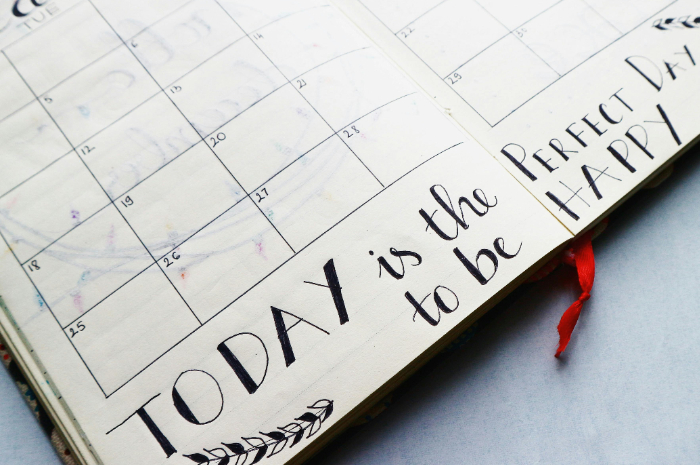 TUE
5 6
12 13 14
18 19 20 21
25 26 27 28
TODAY is the
to be
22
29
PERFECT DAY
HAPPY